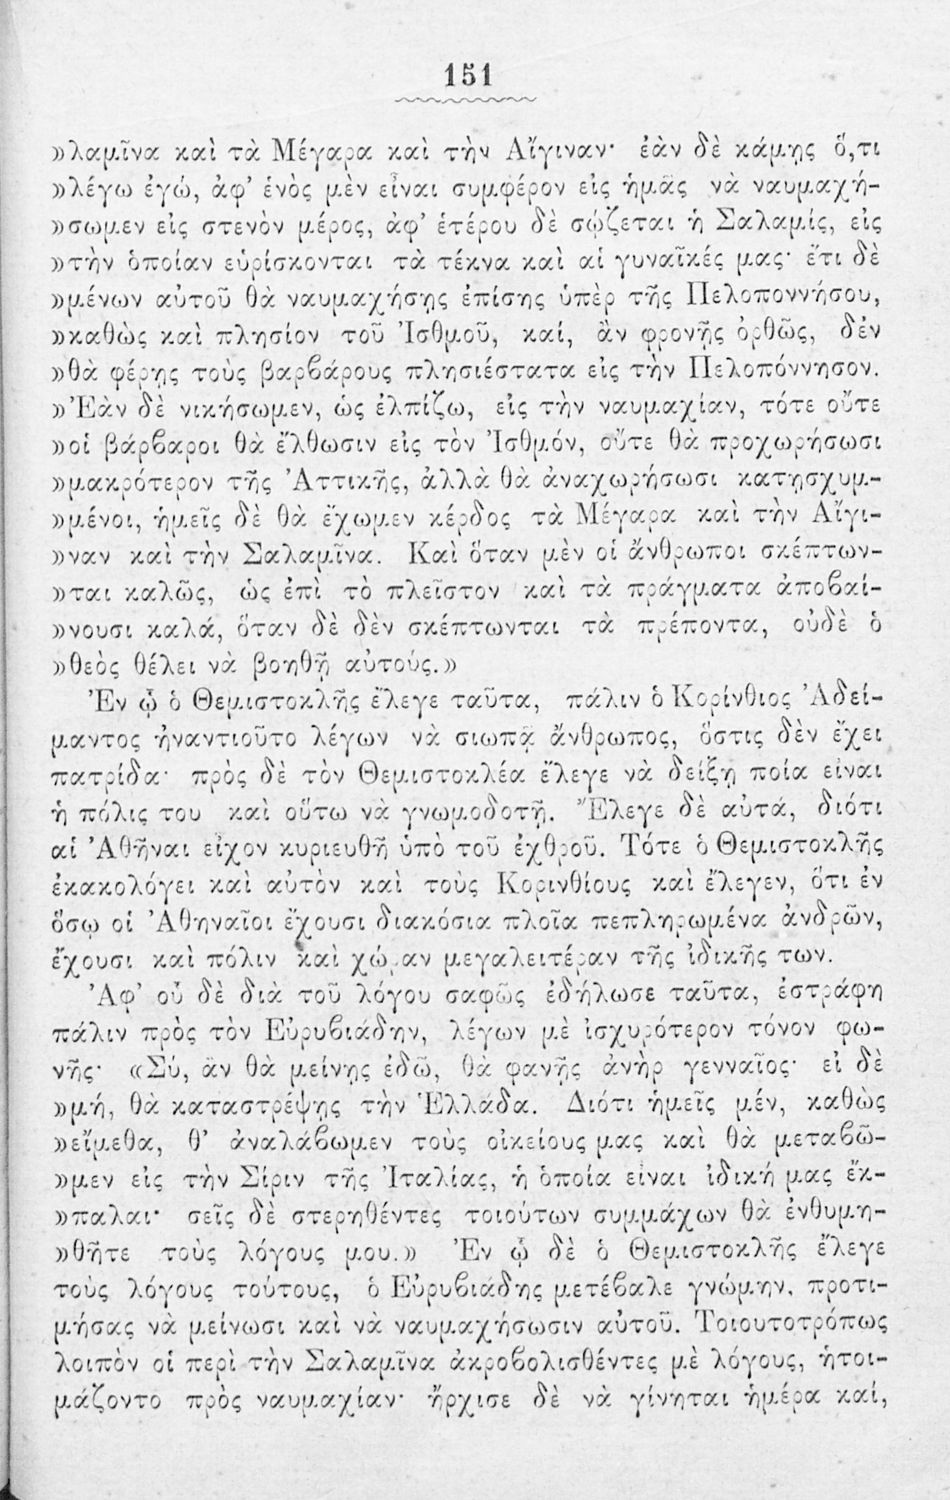 151
»λαμῖνα καὶ τὰ Μέγαρα καὶ τὴν Αἴγιναν· ἐὰν δὲ κάμῃς ὅ,τι
»λέγω ἐγώ, ἀφ’ ἑνὸς μὲν εἶναι συμφέρον εἰς ἡμᾶς νὰ ναυμαχή-
»σωμεν εἰς στενὸν μέρος, ἀφ’ ἑτέρου δὲ σῴζεται ἡ Σαλαμίς, εἰς
»τὴν ὁποίαν εὑρίσκονται τὰ τέκνα καὶ αἱ γυναῖκές μας· ἔτι δὲ
»μένων αὐτοῦ θὰ ναυμαχήσῃς ἐπίσης ὑπὲρ τῆς Πελοποννήσου,
»καθὼς καὶ πλησίον τοῦ Ἰσθμοῦ, καί, ἂν φρονῇς ὀρθῶς, δὲν
»θὰ φέρῃς τοὺς βαρβάρους πλησιέστατα εἰς τὴν Πελοπόννησον.
»Ἐὰν δὲ νικήσωμεν, ὡς ἐλπίζω, εἰς τὴν ναυμαχίαν, τότε οὔτε
»οἱ βάρβαροι θὰ ἔλθωσιν εἰς τὸν Ἰσθμόν, οὔτε θὰ προχωρήσωσι
»μακρότερον τῆς Ἀττικῆς, ἀλλὰ θὰ ἀναχωρήσωσι κατῃσχυμ-
»μένοι, ἡμεῖς δὲ θὰ ἔχωμεν κέρδος τὰ Μέγαρα καὶ τὴν Αἴγι-
»ναν καὶ τὴν Σαλαμῖνα. Καὶ ὅταν μὲν οἱ ἄνθρωποι σκέπτων-
»ται καλῶς, ὡς ἐπὶ τὸ πλεῖστον καὶ τὰ πράγματα ἀποβαί-
»νουσι καλά, ὅταν δὲ δὲν σκέπτωνται τὰ πρέποντα, οὐδὲ ὁ
»θεὸς θέλει νὰ βοηθῇ αὐτούς.»
Ἐν ᾧ ὁ Θεμιστοκλῆς ἔλεγε ταῦτα, πάλιν ὁ Κορίνθιος Ἀδεί-
μαντος ἠναντιοῦτο λέγων νὰ σιωπᾷ ἄνθρωπος, ὅστις δὲν ἔχει
πατρίδα· πρὸς δὲ τὸν Θεμιστοκλέα ἔλεγε νὰ δείξῃ ποία εἶναι
ἡ πόλις του καὶ οὕτω νὰ γνωμοδοτῇ. Ἔλεγε δὲ αὐτά, διότι
αἱ Ἀθῆναι εἶχον κυριευθῆ ὑπὸ τοῦ ἐχθροῦ. Τότε ὁ Θεμιστοκλῆς
ἐκακολόγει καὶ αὐτὸν καὶ τοὺς Κορινθίους καὶ ἔλεγεν, ὅτι ἐν
ὅσῳ οἱ Ἀθηναῖοι ἔχουσι διακόσια πλοῖα πεπληρωμένα ἀνδρῶν,
ἔχουσι καὶ πόλιν καὶ χώραν μεγαλειτέραν τῆς ἰδικῆς των.
Ἀφ’ οὗ δὲ διὰ τοῦ λόγου σαφῶς ἐδήλωσε ταῦτα, ἐστράφη
πάλιν πρὸς τὸν Εὐρυβιάδην, λέγων μὲ ἰσχυρότερον τόνον φω-
νῆς· «Σύ, ἂν θὰ μείνῃς ἐδῶ, θὰ φανῇς ἀνὴρ γενναῖος· εἰ δὲ
»μή, θὰ καταστρέψῃς τὴν Ἑλλάδα. Διότι ἡμεῖς μέν, καθὼς
»εἴμεθα, θ’ ἀναλάβωμεν τοὺς οἰκείους μας καὶ θὰ μεταβῶ-
»μεν εἰς τὴν Σίριν τῆς Ἰταλίας, ἡ ὁποία εἶναι ἰδική μας ἔκ-
»παλαι· σεῖς δὲ στερηθέντες τοιούτων συμμάχων θὰ ἐνθυμη-
»θῆτε τοὺς λόγους μου.» Ἐν ᾧ δὲ ὁ Θεμιστοκλῆς ἔλεγε
τοὺς λόγους τούτους, ὁ Εὐρυβιάδης μετέβαλε γνώμην, προτι-
μήσας νὰ μείνωσι καὶ νὰ ναυμαχήσωσιν αὐτοῦ. Τοιουτοτρόπως
λοιπὸν οἱ περὶ τὴν Σαλαμῖνα ἀκροβολισθέντες μὲ λόγους, ἡτοι-
μάζοντο πρὸς ναυμαχίαν· ἤρχισε δὲ νὰ γίνηται ἡμέρα καί,